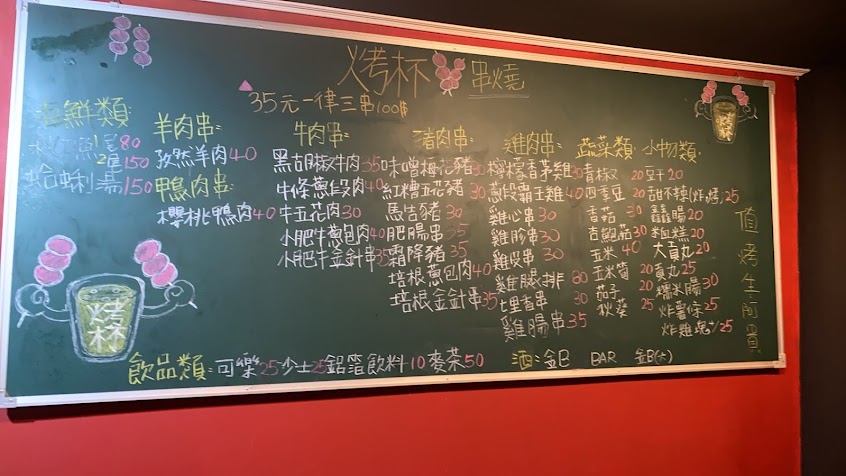 烤杯 串燒
35元一律三串100$
海鮮類:
魚尾80
2尾150
蛤蜊湯150
羊肉串:
孜然羊肉40
鴨肉串:
櫻桃鴨肉40
牛肉串:
黑胡椒牛肉35
牛條蔥段肉40
牛五花肉30
小肥牛蔥包肉40
小肥牛金針串35
豬肉串:
味噌梅花豬30
紅糟五花豬30
馬告豬30
肥腸串35
霜降豬35
培根蔥包肉40
培根金針串35
雞肉串:
檸檬香茅雞30
蔥段霸王雞40
雞心串30
雞胗串30
雞腿排80
七里香串30
雞腸串35
蔬菜類:
青椒20
四季豆20
香菇30
杏鮑菇30
玉米40
玉米筍20
茄子20
秋葵25
小物類:
豆干20
甜不辣(炸,烤)25
鑫鑫腸20
米血糕20
大貢丸20
貢丸25
糯米腸30
炸薯條25
炸雞塊25
值烤生:阿貴
烤杯
飲品類:可樂25沙士25鋁箔飲料10麥茶50
酒:金B BAR 金B(大)